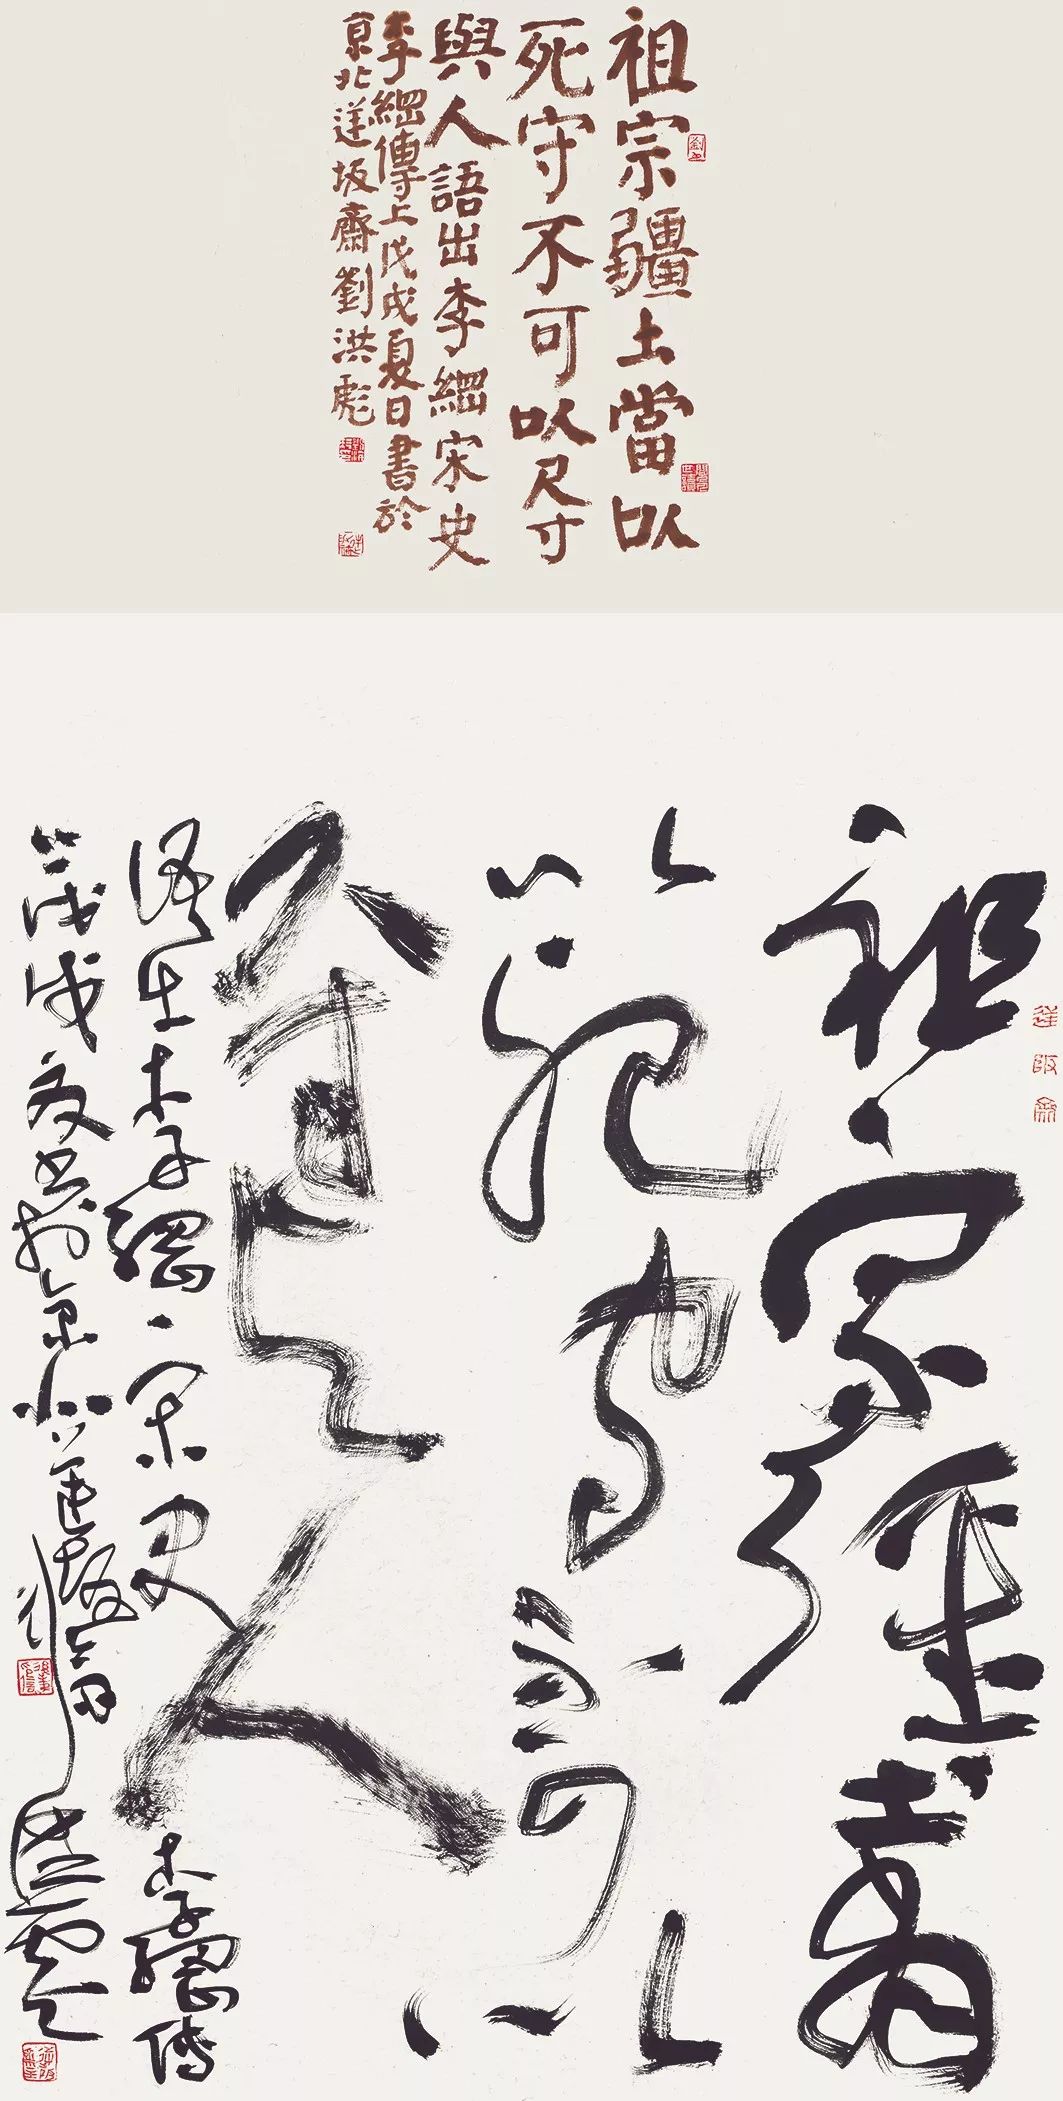 祖宗疆土當以
死守不可以尺寸
與人語出李綱宋史
李綱傳上戊戌夏日書於
京北逆坂齋劉洪彪
祖宗疆土當
以死守不可以
尺寸與人
語出李綱宋史李綱傳
上戊戌夏書於京北逆坂齋劉洪彪
逆阪齋